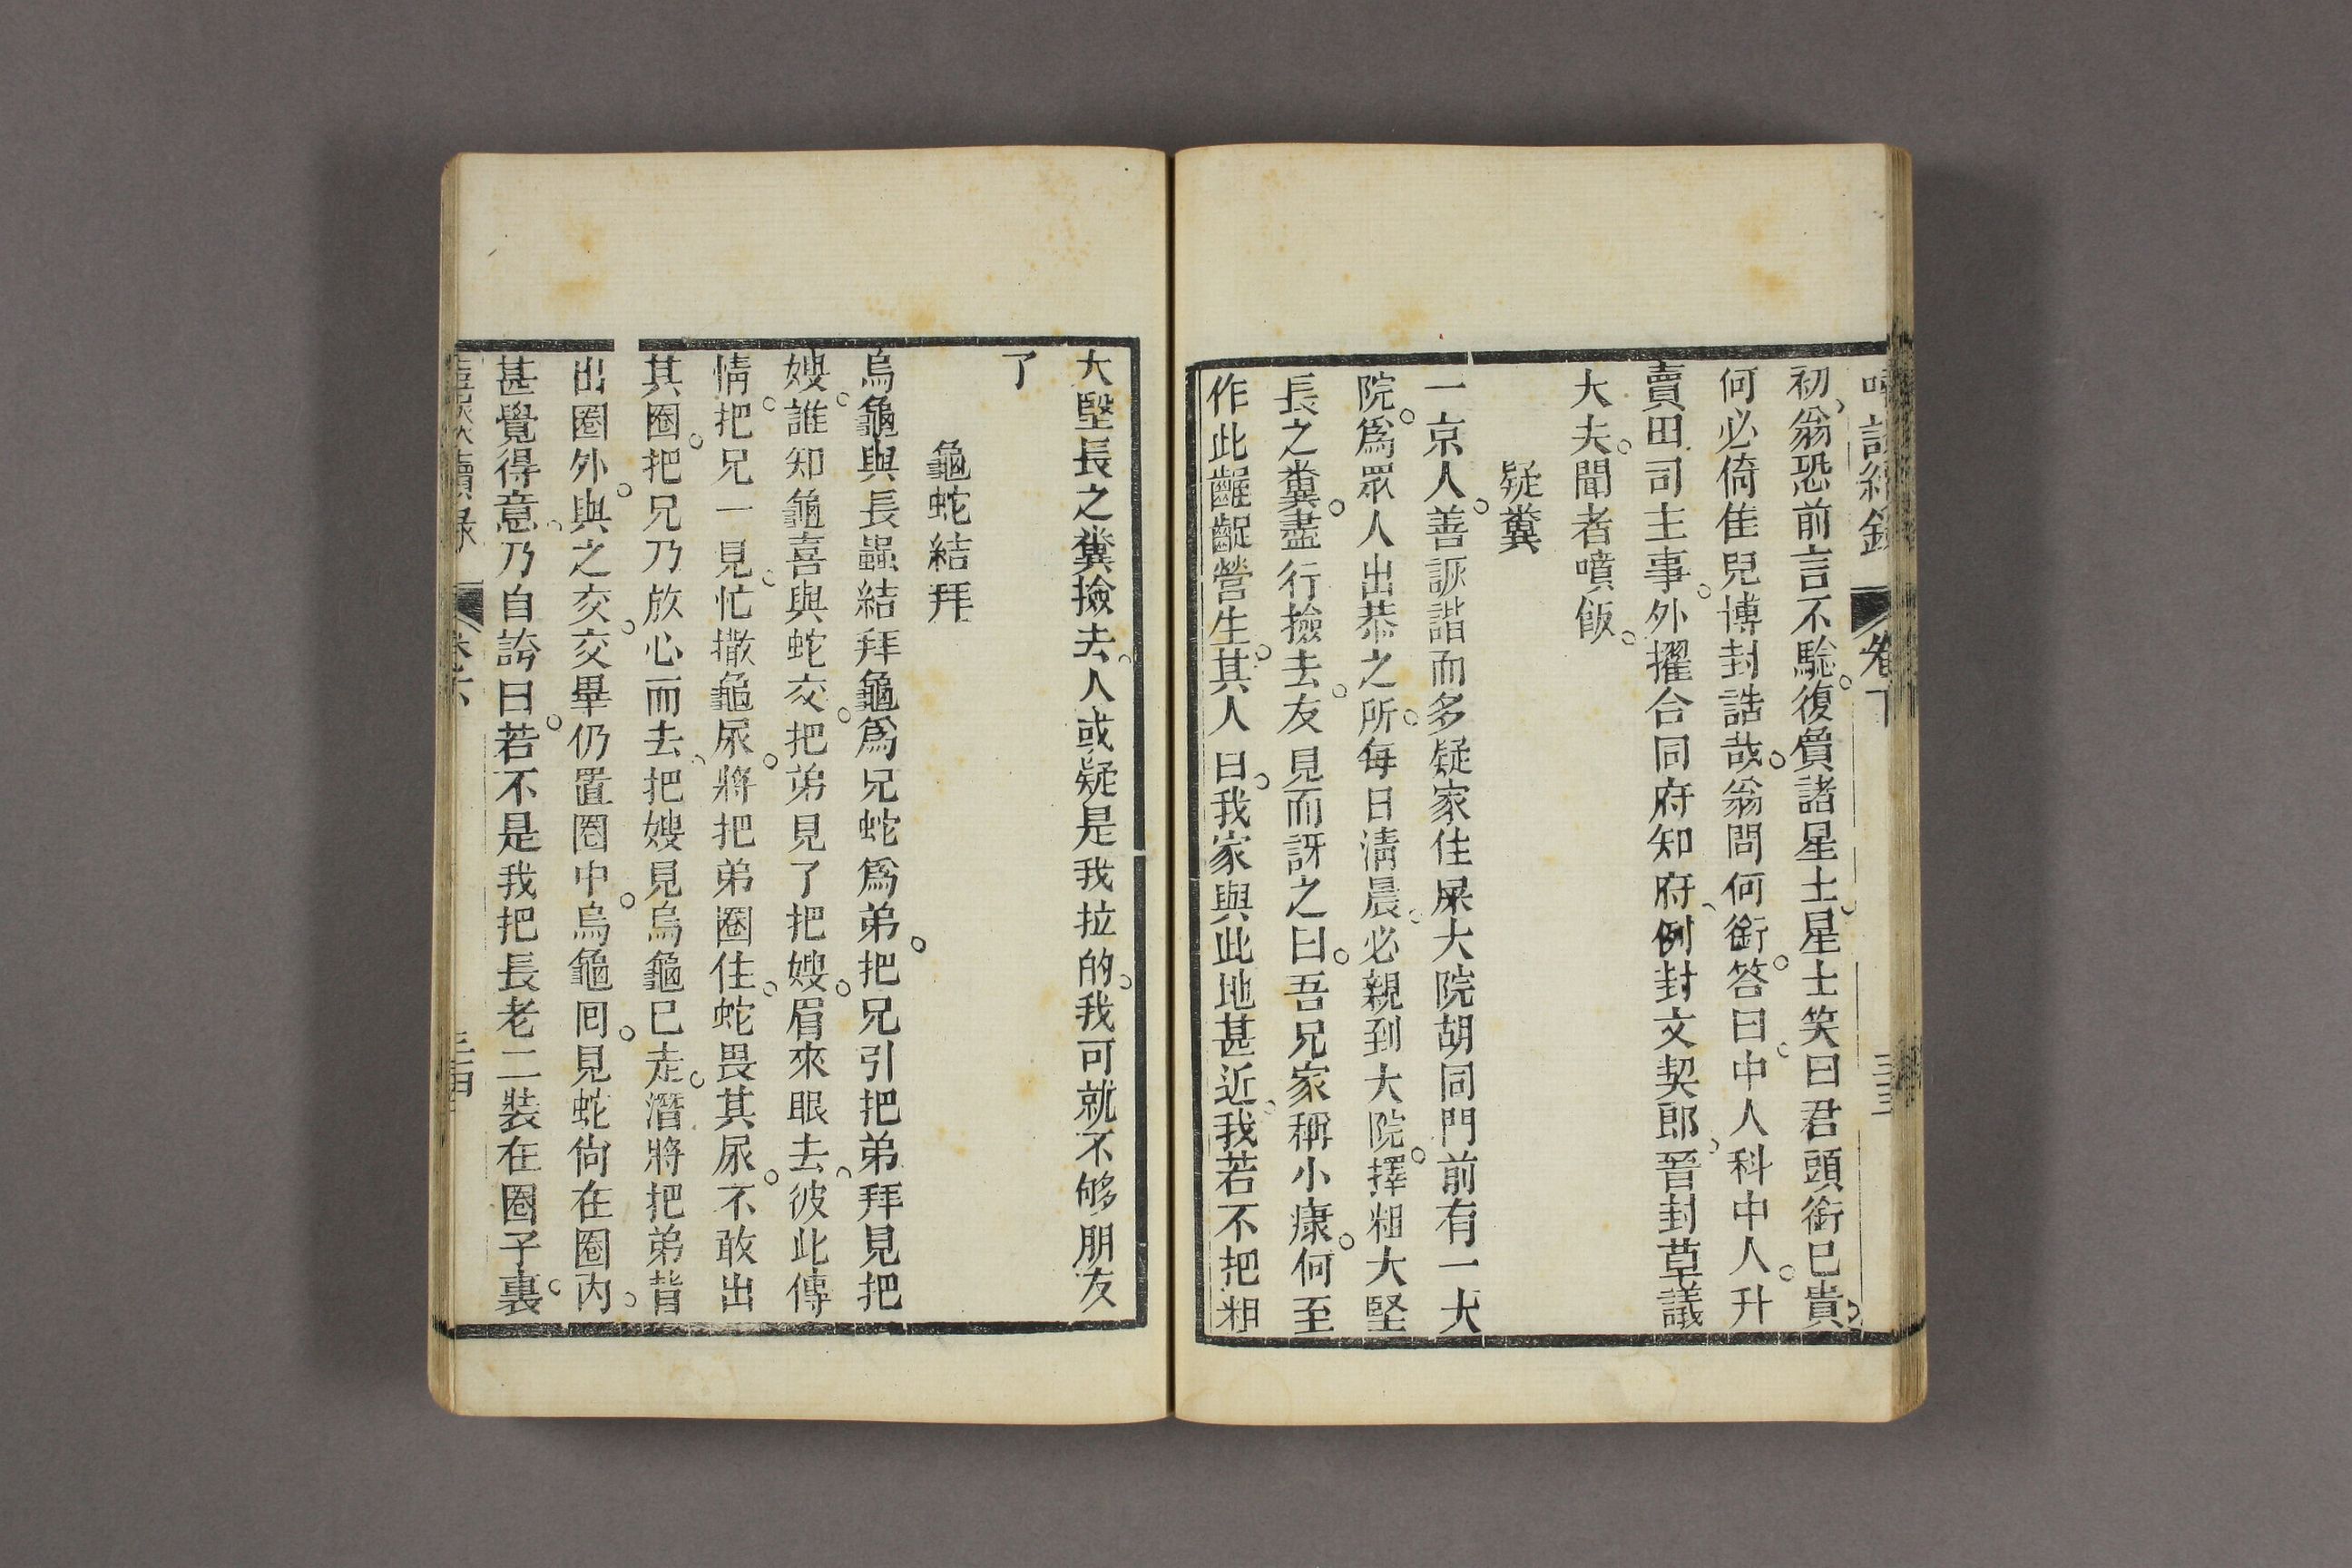 卷下
三三
初翁恐前言不驗。復質諸星士。星士笑曰君頭銜已貴。
何必倚佳兒博封誥哉。翁問何銜。答曰中人科中人。升
賣田司主事。外擢合同府知府、例封文契郎、晉封草議
大夫。聞者噴飯。
疑糞
一京人。善詼諧而多疑家住屎大院胡同門前有一大
院。為眾人出恭之所。每日清晨。必親到大院。擇粗大堅
長之糞。盡行撿去。友見而訝之。曰吾兄家稱小康。何至
作此齷齪營生。其人曰。我家與此地甚近。我若不把粗
大堅長之糞撿去、人或疑是我拉的。我可就不够朋友
了
龜蛇結拜
烏龜與長蟲結拜龜為兄蛇為弟。把兄引把弟拜見把
嫂。誰知龜喜與蛇交。把弟見了把嫂。眉來眼去、彼此傳
情。把兄一見。忙撒龜尿。將把弟圈住。蛇畏其尿。不敢出
其圈。把兄乃放心而去、把嫂見烏龜已走。潛將把弟背
出圈外。與之交。交畢仍置圈中。烏龜回。見蛇尙在圈內。
甚覺得意。乃自誇曰。若不是我把長老二裝在圈子裏。
三四